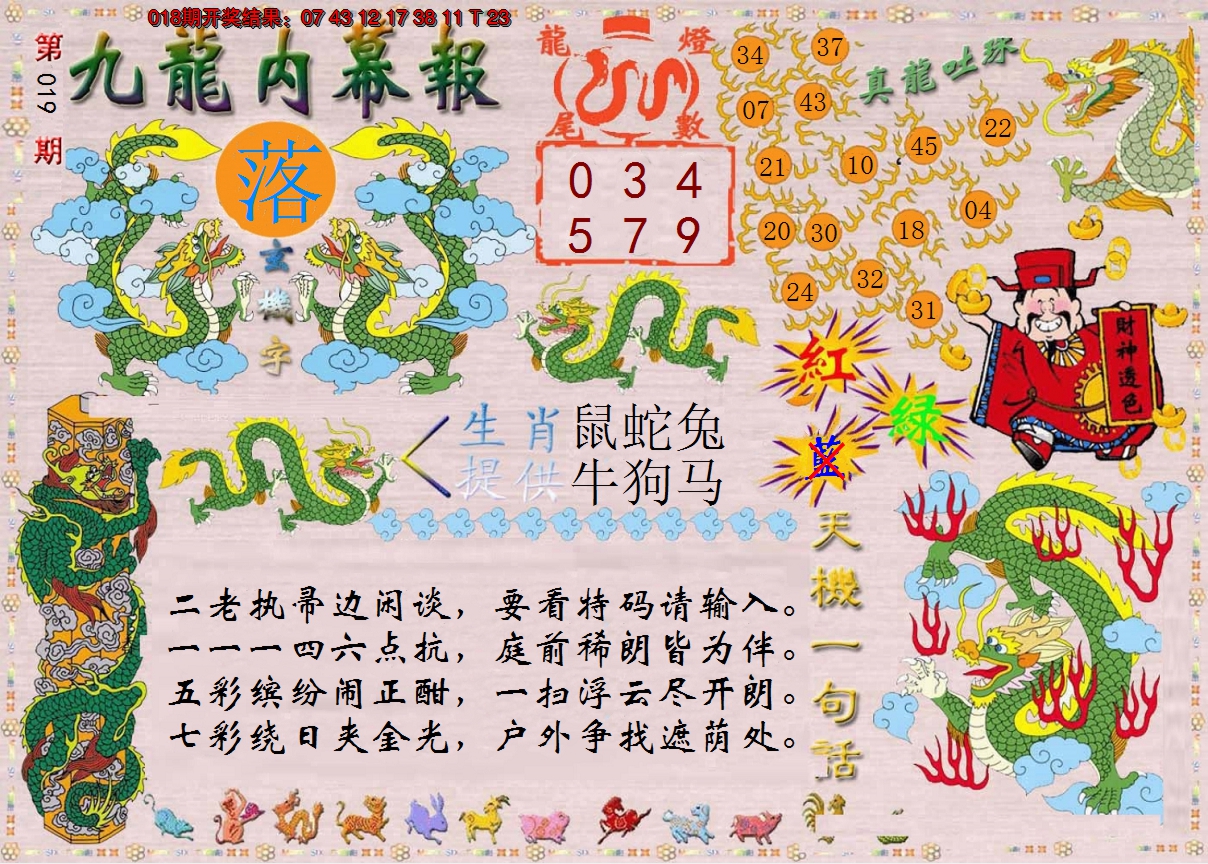 018期开奖结果：07 43 12 17 38 11 T 23
第019期
九龍内幕報
落
玄機字
龍燈尾數
0 3 4
5 7 9
真龍吐珠
34 37
07 43
21 10 45 22
20 30 18 04
24 32 31
財神透色
紅
綠
藍
生肖 鼠蛇兔
提供 牛狗马
天機一句話
二老执帚边闲谈，要看特码请输入。
一一一四六点抗，庭前稀朗皆为伴。
五彩缤纷闹正酣，一扫浮云尽开朗。
七彩绕日夹金光，户外争找遮荫处。